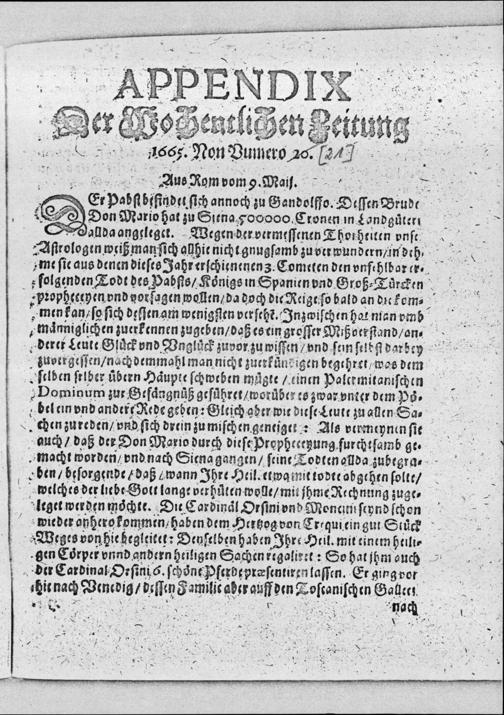 APPENDIX
Der Wochentlichen Zeitung
1665. Non Vumero 26. [21]
Aus Rom vom 9. Maij.
DEr Pabst befindet sich annoch zu Gandolffo. Dessen Brude
Don Mario hat zu Siena 500000. Cronen in Landgüter
allda angeleget. Wegen der vermessenen Thorheiten unse
Astrologen weiß man sich allhie nicht gnugsamb zu verwundern / in deh-
me sie aus denen dieses Jahr erschienenen 3. Cometen den unfehlbar er-
folgenden Todt des Pabsts / Königs in Spanien und Groß-Türcken
propheceyen und vorsagen wollen / da doch die Reige so bald an die kom-
men kan / so sich dessen am wenigsten versehē. Inzwischen hat man umb
männiglichen zuerkennen zugeben / daß es ein grosser Mißverstand / an-
derer Leute Glück und Vnglück zuvor zu wissen / und sein selbst darbey
zuvergessen / nachdemmahl man nicht zuerkündigen begehret / was dem
selben selber übern Häupte schweben mügte / einen Palermitanischen
Dominum zur Gefängnüß geführet / worüber es zwar unter dem Pö-
bel ein und andere Rede geben: Gleich aber wie diese Leute zu allen Sa-
chen zu reden / und sich drein zu mischen geneiget: Als vermeynen sie
auch / daß der Don Mario durch diese Propheceyung furchtsamb ge-
macht worden / und nach Siena gangen / seine Todten allda zubegra-
ben / besorgende / daß / wann Ihre Heil. etwa mit tode abgehen solte /
welches der liebe Gott lange verhüten wolle / mit ihme Rechnung zuge-
leget werden möchte. Die Cardinäl Orsini und Moncini seynd schon
wieder anhero kommen / haben dem Hertzog von Crequi ein gut Stück
Weges von hie begleitet: Denselben haben Ihre Heil. mit einem heili-
gen Cörper unnd andern heiligen Sachen regaliret: So hat ihm auch
der Cardinal Orsini 6. schöne Pferde præsentiren lassen. Er ging vor
hie nach Venedig / dessen Familie aber auff den Toscanischen Galleen
nach